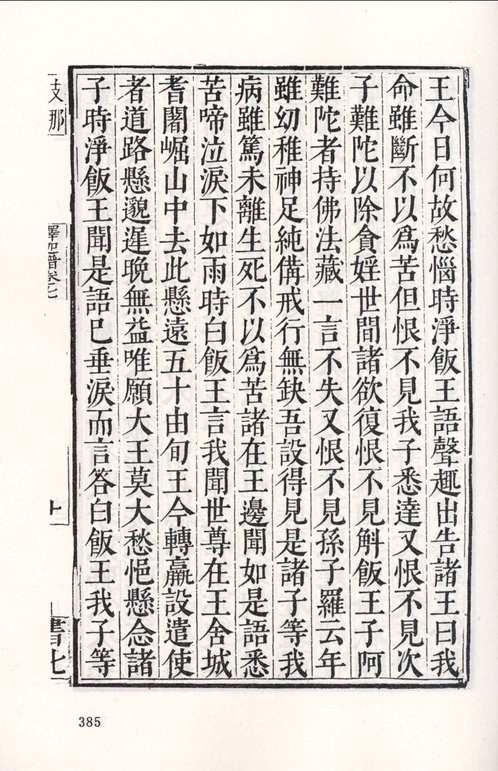 王今日何故愁惱時淨飯王語聲趣出告諸王曰我
命雖斷不以爲苦但恨不見我子悉達又恨不見次
子難陀以除貪婬世間諸欲復恨不見斛飯王子阿
難陀者持佛法藏一言不失又恨不見孫子羅云年
雖幼稚神足純備戒行無缺吾設得見是諸子等我
病雖篤未離生死不以爲苦諸在王邊聞如是語悉
苦啼泣淚下如雨時白飯王言我聞世尊在王舍城
耆闍崛山中去此懸遠五十由旬王今轉羸設遣使
者道路懸邈遲晚無益唯願大王莫大愁悒懸念諸
子時淨飯王聞是語已垂淚而言答白飯王我子等
支那
譜卷七
十
書七
385